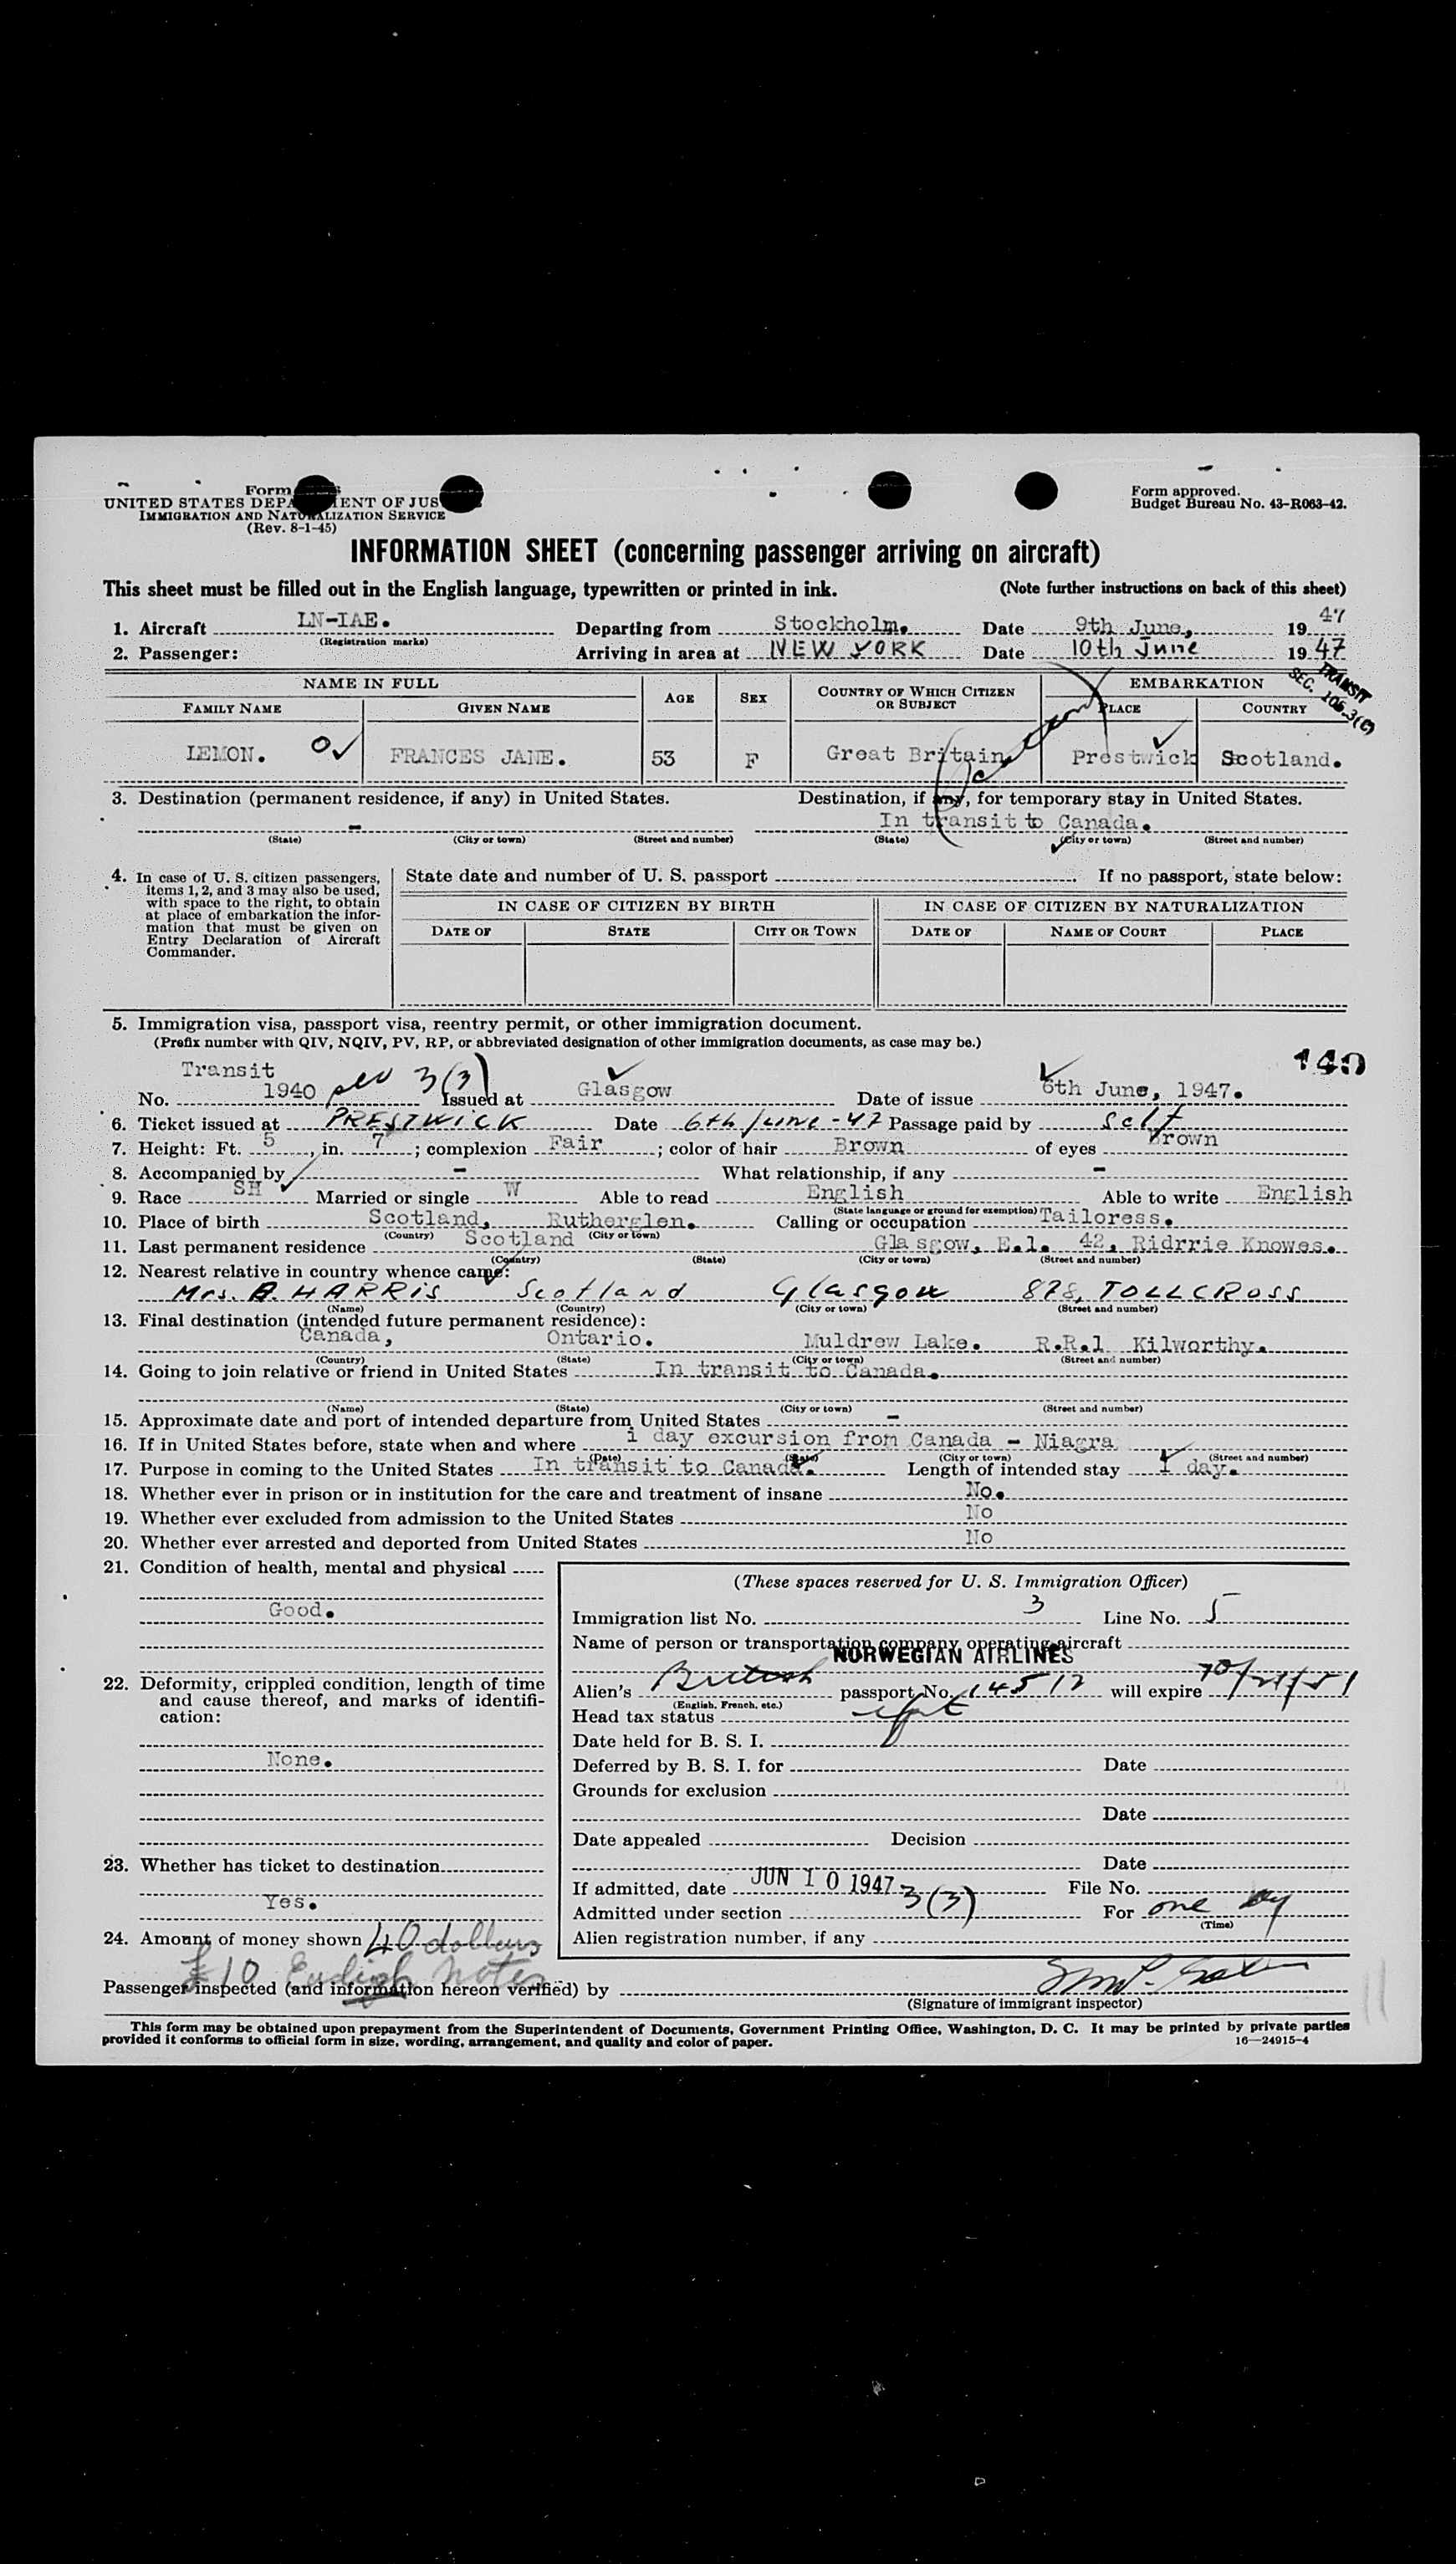 Form
UNITED STATES DEPA MENT OF JUS
IMMIGRATION AND NATURALIZATION SERVICE
(Rev. 8-1-45)
Form approved.
Budget Bureau No. 43-R063-42.
INFORMATION SHEET (concerning passenger arriving on aircraft)
This sheet must be filled out in the English language, typewritten or printed in ink. (Note further instructions on back of this sheet)
1. Aircraft LN-IAE. Departing from Stockholm. Date 9th June, 1947
(Registration marks)
2. Passenger: Arriving in area at NEW YORK Date 10th June 1947
TRANSIT
SEC. 106.3(C)
NAME IN FULL AGE SEX COUNTRY OF WHICH CITIZEN OR SUBJECT EMBARKATION
FAMILY NAME GIVEN NAME PLACE COUNTRY
LEMON. FRANCES JANE. 53 F Great Britain Prestwick Scotland.
3. Destination (permanent residence, if any) in United States. Destination, if any, for temporary stay in United States.
- In transit to Canada.
(State) (City or town) (Street and number) (State) (City or town) (Street and number)
4. In case of U. S. citizen passengers, items 1, 2, and 3 may also be used, with space to the right, to obtain at place of embarkation the information that must be given on Entry Declaration of Aircraft Commander.
State date and number of U. S. passport If no passport, state below:
IN CASE OF CITIZEN BY BIRTH IN CASE OF CITIZEN BY NATURALIZATION
DATE OF STATE CITY OR TOWN DATE OF NAME OF COURT PLACE
5. Immigration visa, passport visa, reentry permit, or other immigration document.
(Prefix number with QIV, NQIV, PV, RP, or abbreviated designation of other immigration documents, as case may be.)
140
Transit
No. 1940 3(3) Issued at Glasgow Date of issue 6th June, 1947.
6. Ticket issued at PRESTWICK Date 6th June - 47 Passage paid by Self
7. Height: Ft. 5, in. 7; complexion Fair; color of hair Brown of eyes Brown
8. Accompanied by - What relationship, if any -
9. Race SH Married or single W Able to read English Able to write English
(State language or ground for exemption)
10. Place of birth Scotland, Rutherglen. Calling or occupation Tailoress.
(Country) (City or town)
11. Last permanent residence Scotland Glasgow, E.1. 42, Ridrrie Knowes.
(Country) (State) (City or town) (Street and number)
12. Nearest relative in country whence came:
Mrs. B. HARRIS Scotland Glasgow 878, TOLLCROSS
(Name) (Country) (City or town) (Street and number)
13. Final destination (intended future permanent residence):
Canada, Ontario. Muldrew Lake. R.R.1 Kilworthy.
(Country) (State) (City or town) (Street and number)
14. Going to join relative or friend in United States In transit to Canada.
(Name) (State) (City or town) (Street and number)
15. Approximate date and port of intended departure from United States -
16. If in United States before, state when and where 1 day excursion from Canada - Niagra
(Date) (State) (City or town) (Street and number)
17. Purpose in coming to the United States In transit to Canada. Length of intended stay 1 day.
18. Whether ever in prison or in institution for the care and treatment of insane No.
19. Whether ever excluded from admission to the United States No
20. Whether ever arrested and deported from United States No
21. Condition of health, mental and physical
Good.
22. Deformity, crippled condition, length of time and cause thereof, and marks of identification:
None.
23. Whether has ticket to destination
Yes.
24. Amount of money shown 40 dollars
£10 English Notes
(These spaces reserved for U. S. Immigration Officer)
Immigration list No. 3 Line No. 5
Name of person or transportation company operating aircraft
NORWEGIAN AIRLINES
Alien's British passport No. 14512 will expire
(English, French, etc.)
Head tax status
Date held for B. S. I.
Deferred by B. S. I. for Date
Grounds for exclusion
Date
Date appealed Decision
Date
If admitted, date JUN 10 1947 File No.
Admitted under section 3(3) For one day
(Time)
Alien registration number, if any
Passenger inspected (and information hereon verified) by
(Signature of immigrant inspector)
This form may be obtained upon prepayment from the Superintendent of Documents, Government Printing Office, Washington, D. C. It may be printed by private parties
provided it conforms to official form in size, wording, arrangement, and quality and color of paper. 16—24915-4